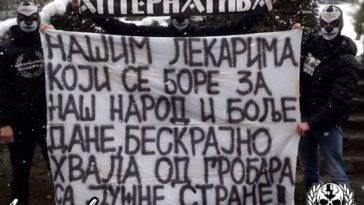 АЛТЕРНАТИВА
НАШИМ ЛЕКАРИМА
КОЈИ СЕ БОРЕ ЗА
НАШ НАРОД И БОЉЕ
ДАНЕ, БЕСКРАЈНО
ХВАЛА ОД ГРОБАРА
СА ЈУЖНЕ СТРАНЕ!